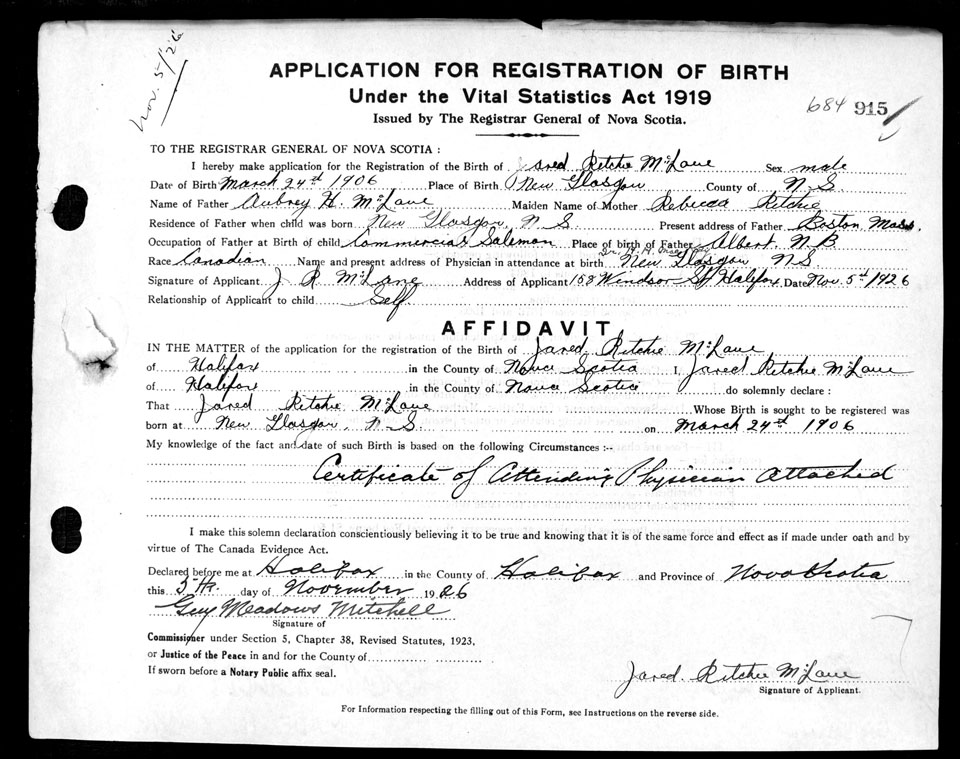 Nov. 5/26
APPLICATION FOR REGISTRATION OF BIRTH
Under the Vital Statistics Act 1919
684 915
Issued by The Registrar General of Nova Scotia.
TO THE REGISTRAR GENERAL OF NOVA SCOTIA :
I hereby make application for the Registration of the Birth of Jared Ritchie McLane Sex male
Date of Birth March 24th 1906 Place of Birth New Glasgow County of N.S.
Name of Father Aubrey H. McLane Maiden Name of Mother Rebecca Ritchie
Residence of Father when child was born New Glasgow, N S. Present address of Father Boston Mass.
Occupation of Father at Birth of child Commercial Salesman Place of birth of Father Albert N B.
Race Canadian Name and present address of Physician in attendance at birth Dr. New Glasgow N S.
Signature of Applicant J R McLane Address of Applicant 158 Windsor St Halifax Date Nov. 5th 1926
Relationship of Applicant to child Self
AFFIDAVIT
IN THE MATTER of the application for the registration of the Birth of Jared Ritchie McLane
of Halifax in the County of Nova Scotia I, Jared Ritchie McLane
of Halifax in the County of Nova Scotia do solemnly declare :
That Jared Ritchie McLane Whose Birth is sought to be registered was
born at New Glasgow, N. S. on March 24th 1906
My knowledge of the fact and date of such Birth is based on the following Circumstances :--
Certificate of Attending Physician attached
I make this solemn declaration conscientiously believing it to be true and knowing that it is of the same force and effect as if made under oath and by
virtue of The Canada Evidence Act.
Declared before me at Halifax in the County of Halifax and Province of Nova Scotia
this 5th. day of November 1926
Guy Meadows Mitchell
Signature of
Commissioner under Section 5, Chapter 38, Revised Statutes, 1923,
or Justice of the Peace in and for the County of
If sworn before a Notary Public affix seal.
Jared. Ritchie McLane
Signature of Applicant.
For Information respecting the filling out of this Form, see Instructions on the reverse side.